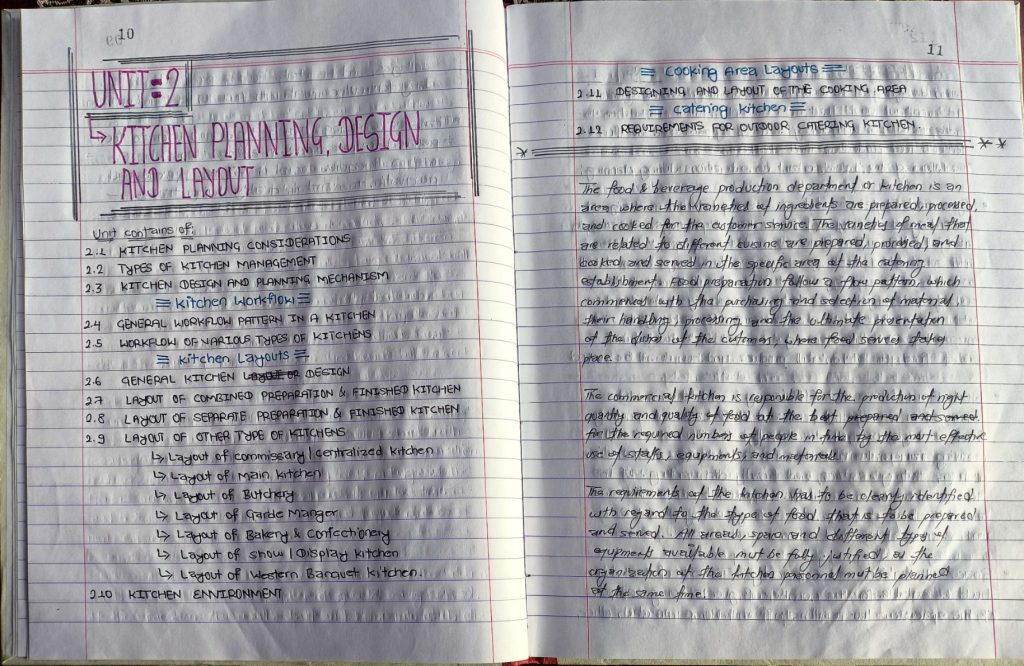 10
UNIT=2
↳ KITCHEN PLANNING, DESIGN
AND LAYOUT
Unit contains of:
2.1 KITCHEN PLANNING CONSIDERATIONS
2.2 TYPES OF KITCHEN MANAGEMENT
2.3 KITCHEN DESIGN AND PLANNING MECHANISM
≡ Kitchen Workflow ≡
2.4 GENERAL WORKFLOW PATTERN IN A KITCHEN
2.5 WORKFLOW OF VARIOUS TYPES OF KITCHENS
≡ Kitchen Layouts ≡
2.6 GENERAL KITCHEN LAYOUT OF DESIGN
2.7 LAYOUT OF COMBINED PREPARATION & FINISHED KITCHEN
2.8 LAYOUT OF SEPARATE PREPARATION & FINISHED KITCHEN
2.9 LAYOUT OF OTHER TYPE OF KITCHENS
↳ Layout of commissary/centralized kitchen
↳ Layout of Main kitchen
↳ Layout of Butchery
↳ Layout of Garde Manger
↳ Layout of Bakery & Confectionery
↳ Layout of show/Display kitchen
↳ Layout of Western Banquet kitchen.
2.10 KITCHEN ENVIRONMENT
11
≡ Cooking Area Layouts ≡
2.11 DESIGNING AND LAYOUT OF THE COOKING AREA
≡ Catering Kitchen ≡
2.12 REQUIREMENTS FOR OUTDOOR CATERING KITCHEN.
The food & beverage production department or kitchen is an
area, where the of ingredients are prepared, processed,
and cooked for the customer service. The varieties of meal that
are related to different cuisine are prepared, processed, and
cooked and served in the specific area of the catering
establishment. Food preparation follows a flow pattern, which
commenced with the purchasing and selection of material
their handling, processing, and the ultimate presentation
of the dishes at the customer, where food services takes
place.
The commercial kitchen is responsible for the production of right
quantity and quality of food at the best prepared and served
for the required numbers of people in time by the most effective
use of staffs, equipments, and materials.
The requirements of the kitchen has to be clearly identified
with regard to the type of food that is to be prepared
and served. All areas, space and different type of
equipments available must be fully justified, as the
organization of the kitchen personnel must be planned
at the same time.